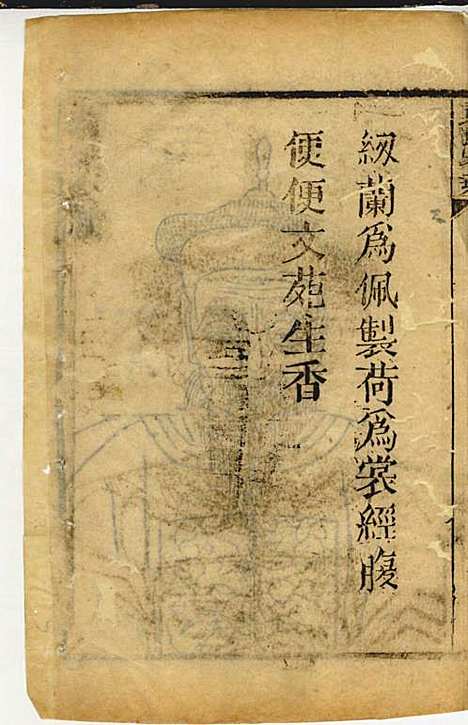 紉蘭爲佩製荷爲裳經腹
便便文苑生香